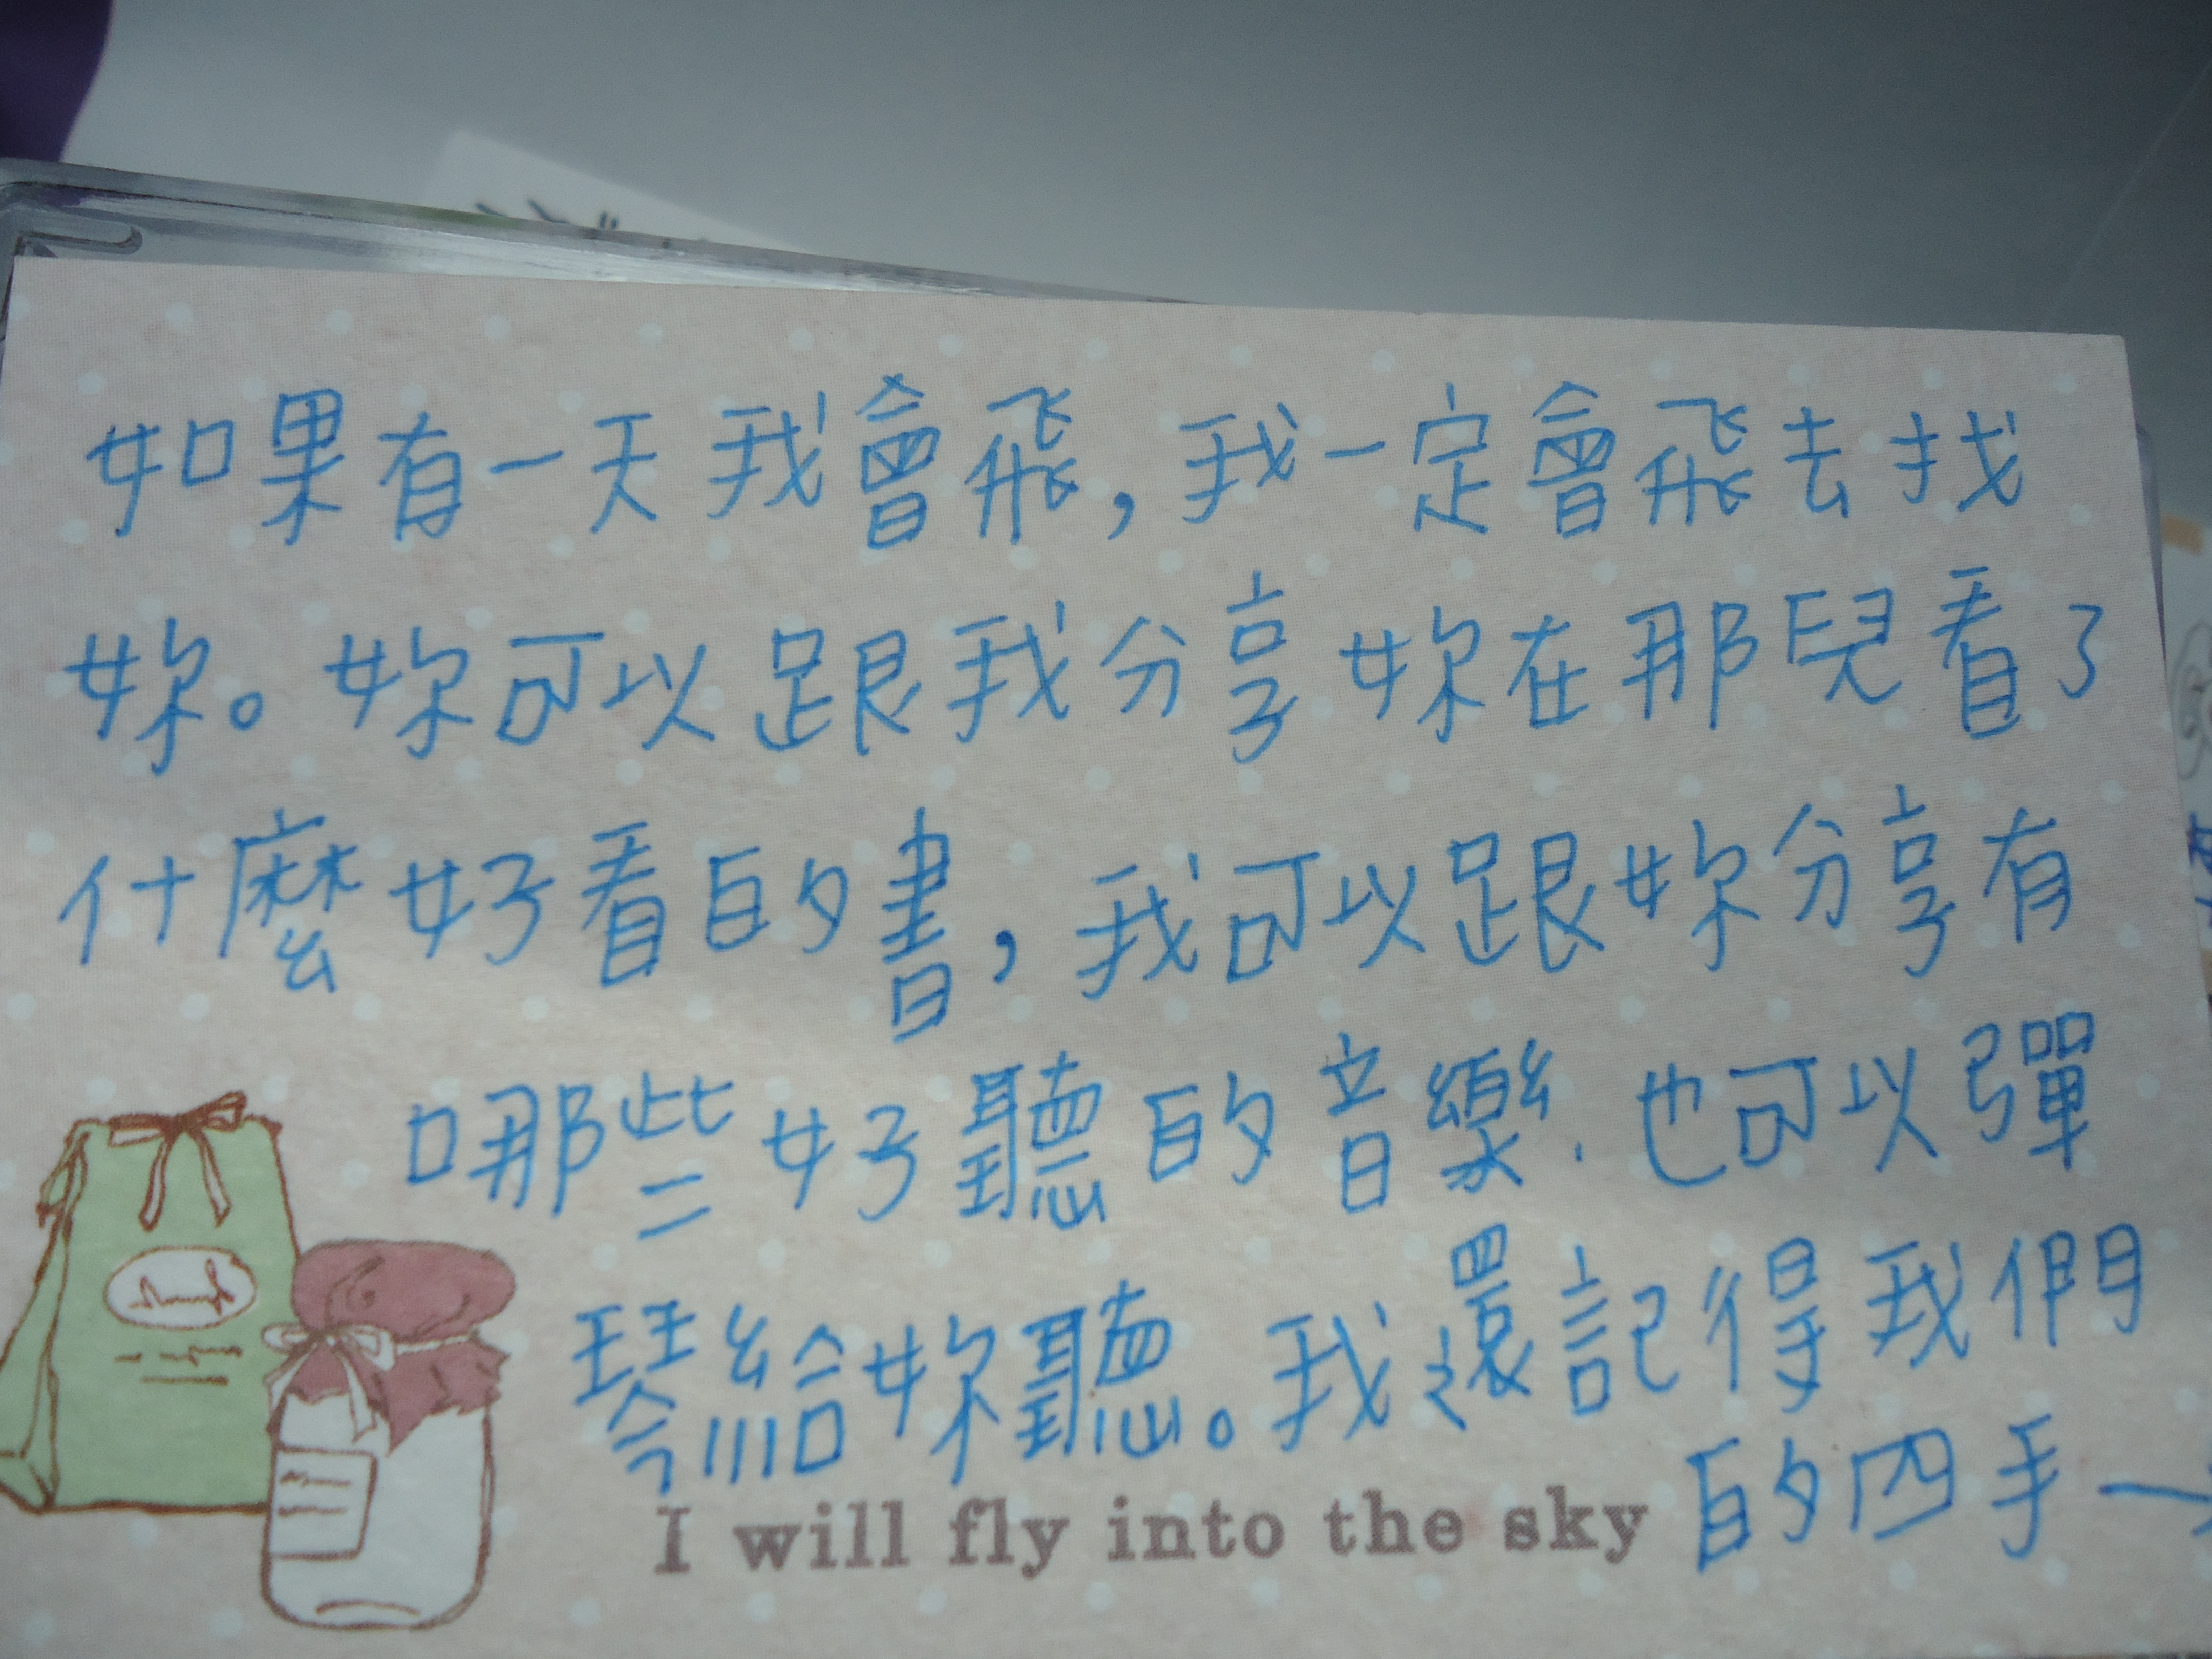 如果有一天我會飛,我一定會飛去找
妳。妳可以跟我分享妳在那兒看了
什麼好看的書,我可以跟妳分享有
哪些好聽的音樂.也可以彈
琴給妳聽。我還記得我們
的四手一
I will fly into the sky